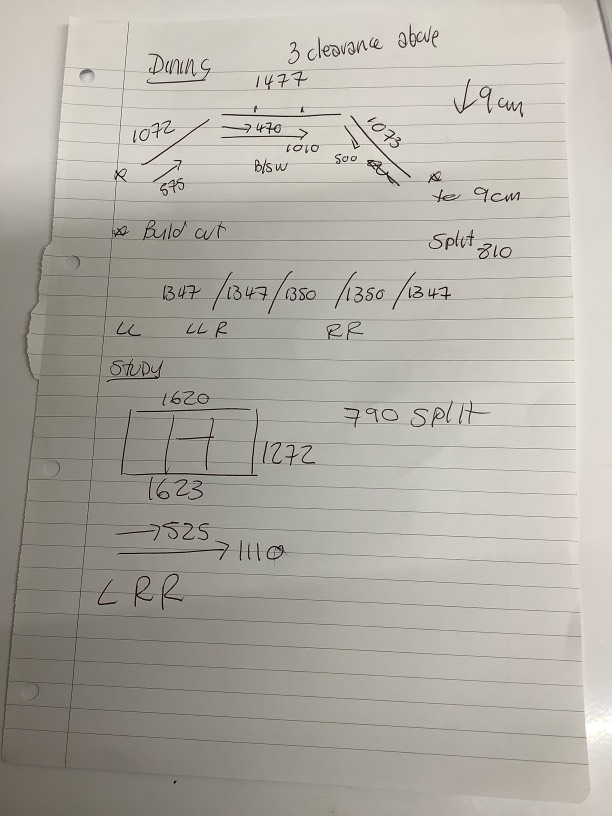 Dining 3 clearance above
1477
↓9cm
1072 →470 1073
1010
575 B/SW 500
* * 9cm
* Build out Split 810
1347 /1347/1350 /1350 /1347
LL LL R RR
Study
1620
790 Split
1272
1623
→525
→1110
L RR